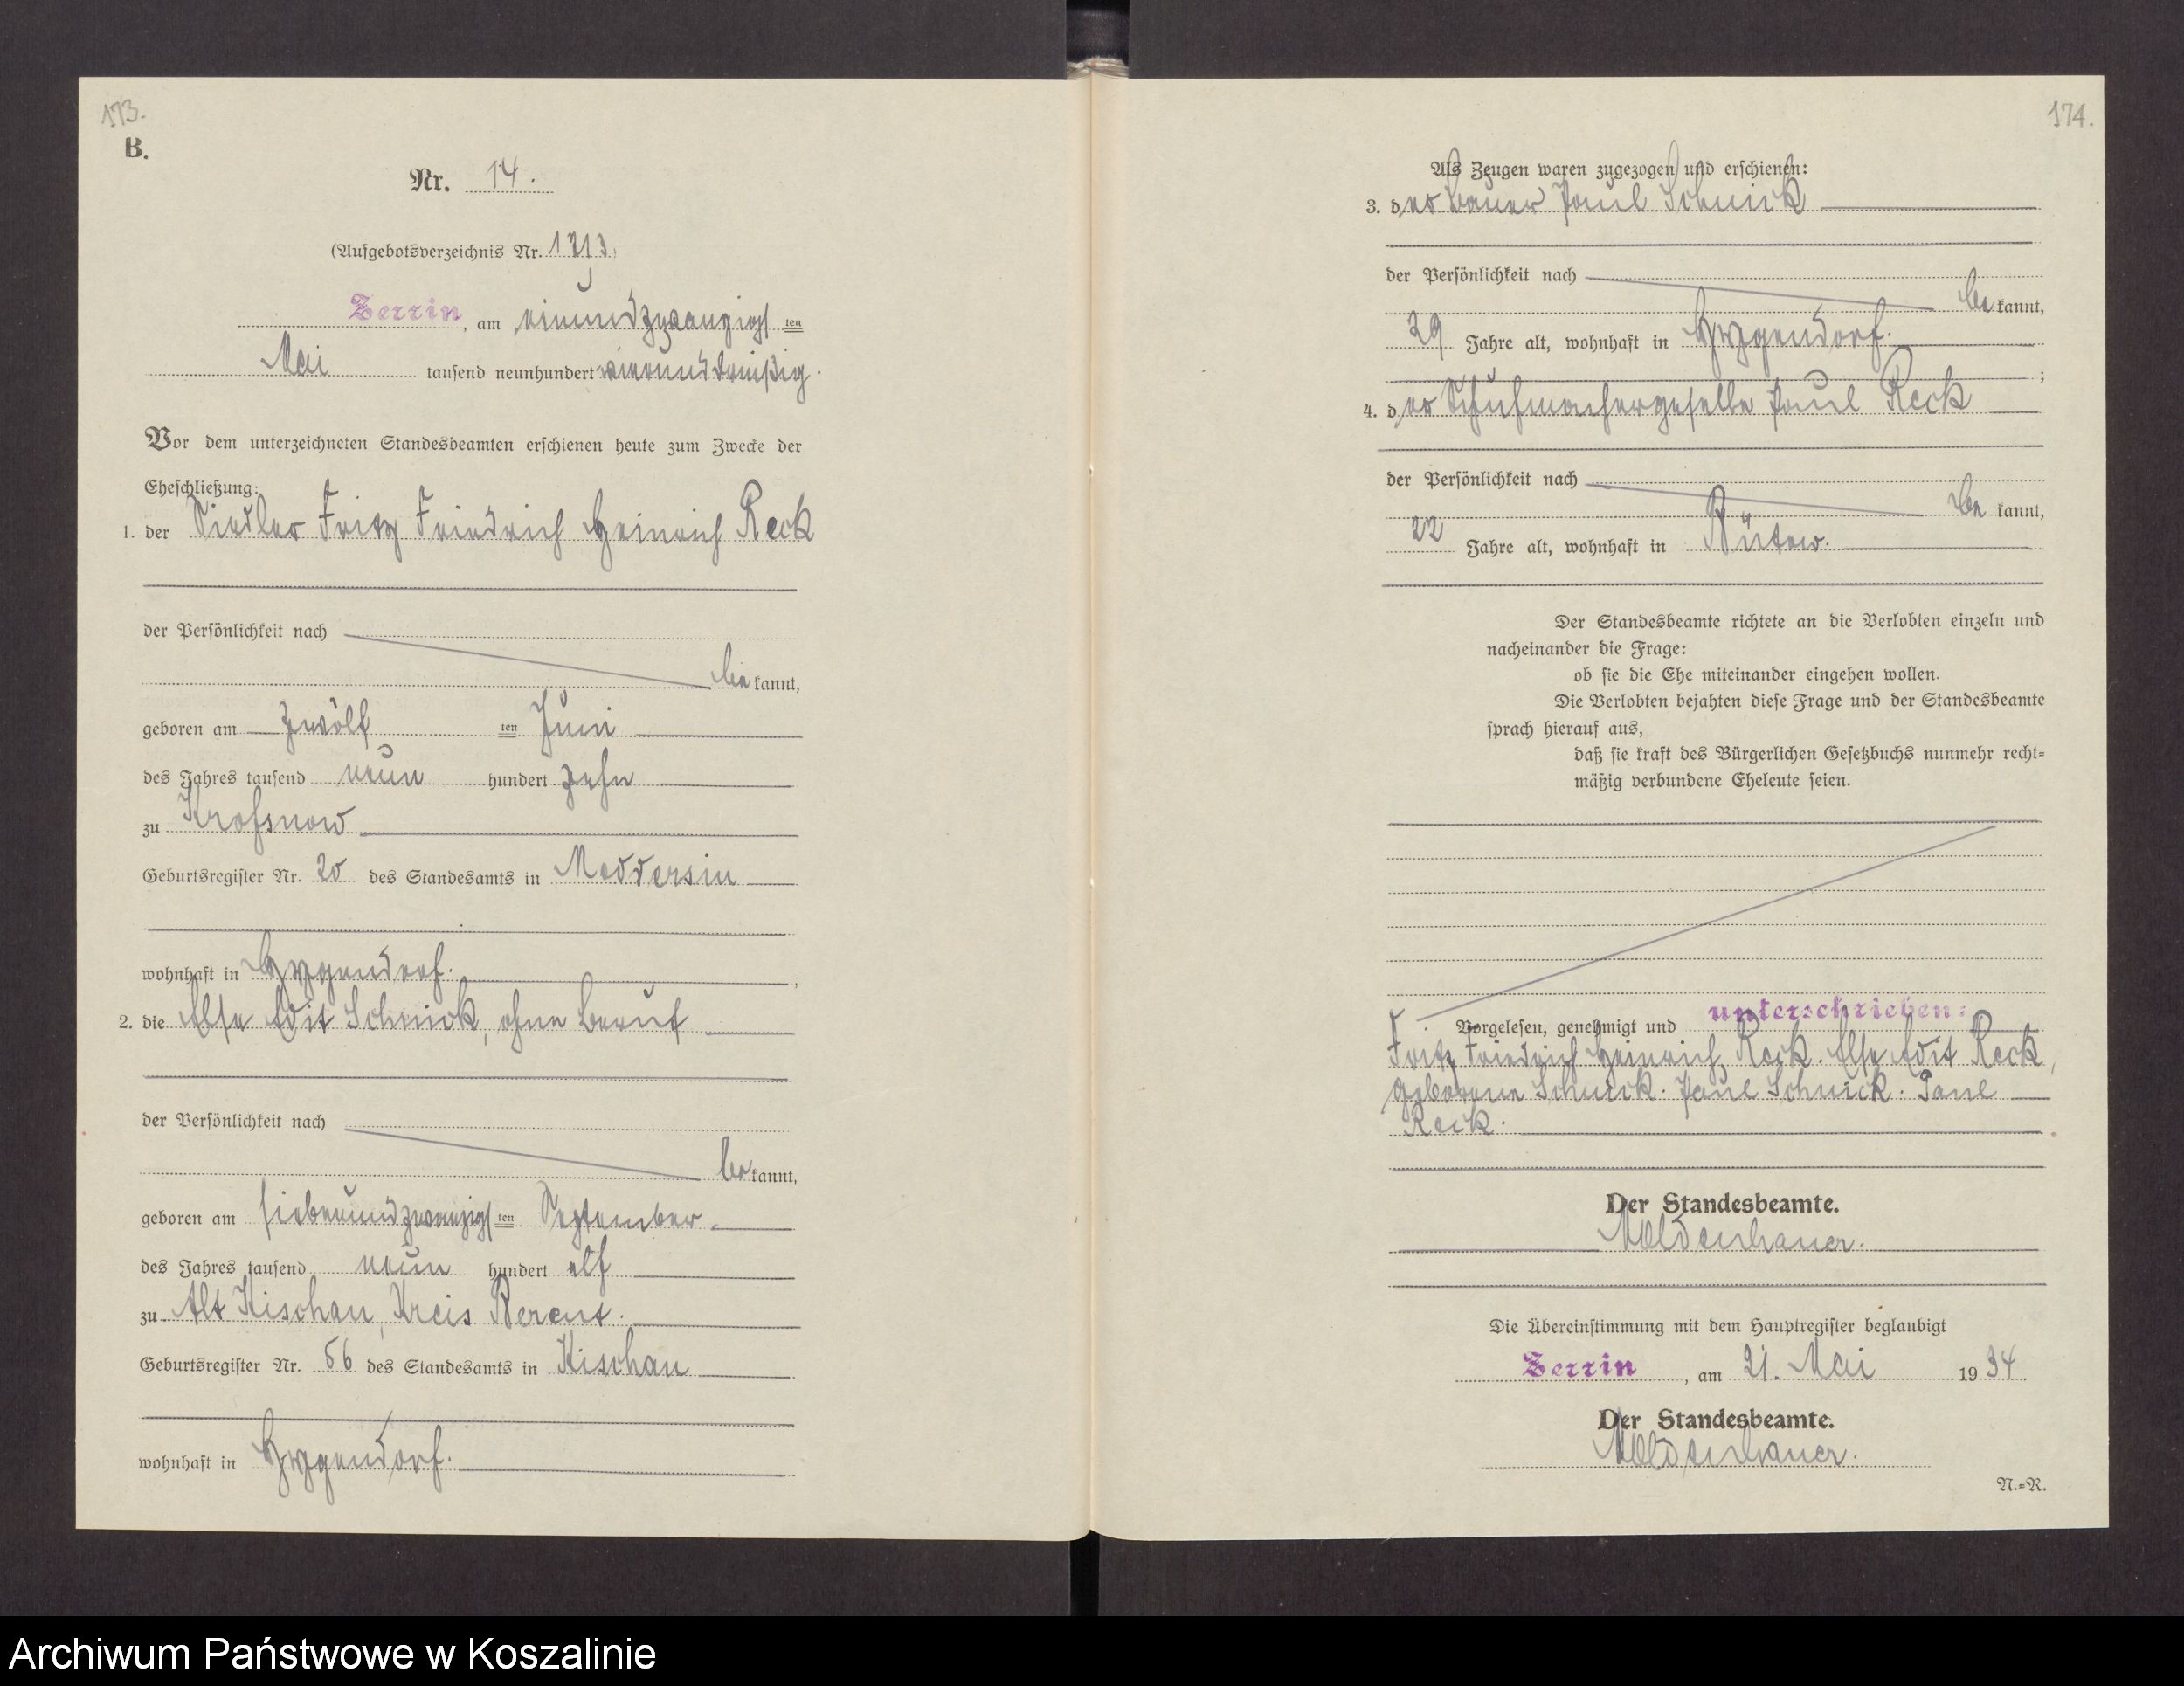 173.
B.
Nr. 14.
(Aufgebotsverzeichnis Nr.
Zerrin, am einundzwanzigsten
Mai tausend neunhundert vierunddreißig.
Vor dem unterzeichneten Standesbeamten erschienen heute zum Zwecke der
Eheschließung:
1. der Siedler Fritz Friedrich Heinrich Reck
der Persönlichkeit nach
be kannt,
geboren am zwölf ten Juni
des Jahres tausend neun hundert zehn
zu Krofsnow
Geburtsregister Nr. 20 des Standesamts in Moddersin
wohnhaft in Hygendorf.,
2. die Else Edit Schnick, ohne Beruf
der Persönlichkeit nach
be kannt,
geboren am siebenundzwanzigs ten September
des Jahres tausend neun hundert elf
zu Alt Kischau, Kreis Berent.
Geburtsregister Nr. 56 des Standesamts in Kischau
wohnhaft in Hygendorf.
174.
Als Zeugen waren zugezogen und erschienen:
3. der Bauer Paul Schnick
der Persönlichkeit nach
be kannt,
29 Jahre alt, wohnhaft in Hygendorf.
;
4. der Schuhmachergeselle Paul Reck
der Persönlichkeit nach
be kannt,
22 Jahre alt, wohnhaft in Bütow.
Der Standesbeamte richtete an die Verlobten einzeln und
nacheinander die Frage:
ob sie die Ehe miteinander eingehen wollen.
Die Verlobten bejahten diese Frage und der Standesbeamte
sprach hierauf aus,
daß sie kraft des Bürgerlichen Gesetzbuchs nunmehr recht-
mäßig verbundene Eheleute seien.
Vorgelesen, genehmigt und unterschrieben:
Fritz Friedrich Heinrich Reck. Else Edit Reck,
geborene Schnick. Paul Schnick. Paul
Reck.
Der Standesbeamte.
Moldenhauer.
Die Übereinstimmung mit dem Hauptregister beglaubigt
Zerrin, am 21. Mai 1934
Der Standesbeamte.
Moldenhauer.
N.-R.
Archiwum Państwowe w Koszalinie